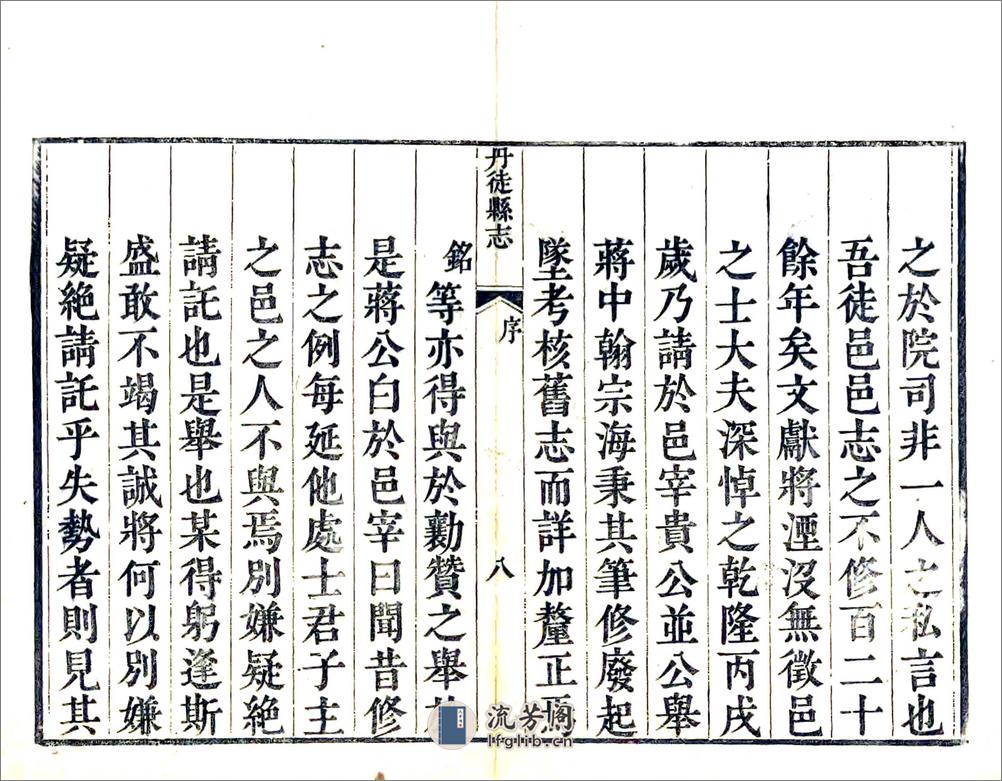 之於院司非一人之私言也
吾徒邑邑志之不修百二十
餘年矣文獻將湮沒無徵邑
之士大夫深悼之乾隆丙戌
歲乃請於邑宰貴公並公舉
蔣中翰宗海秉其筆修廢起
墜考核舊志而詳加釐正焉
丹徒縣志
序
八
銘等亦得與於勷贊之舉
是蔣公白於邑宰曰聞昔修
志之例每延他處士君子主
之邑之人不與焉別嫌疑絶
請託也是舉也某得躬逢斯
盛敢不竭其誠將何以別嫌
疑絶請託乎失勢者則見其
流芳阁
lfglib.cn